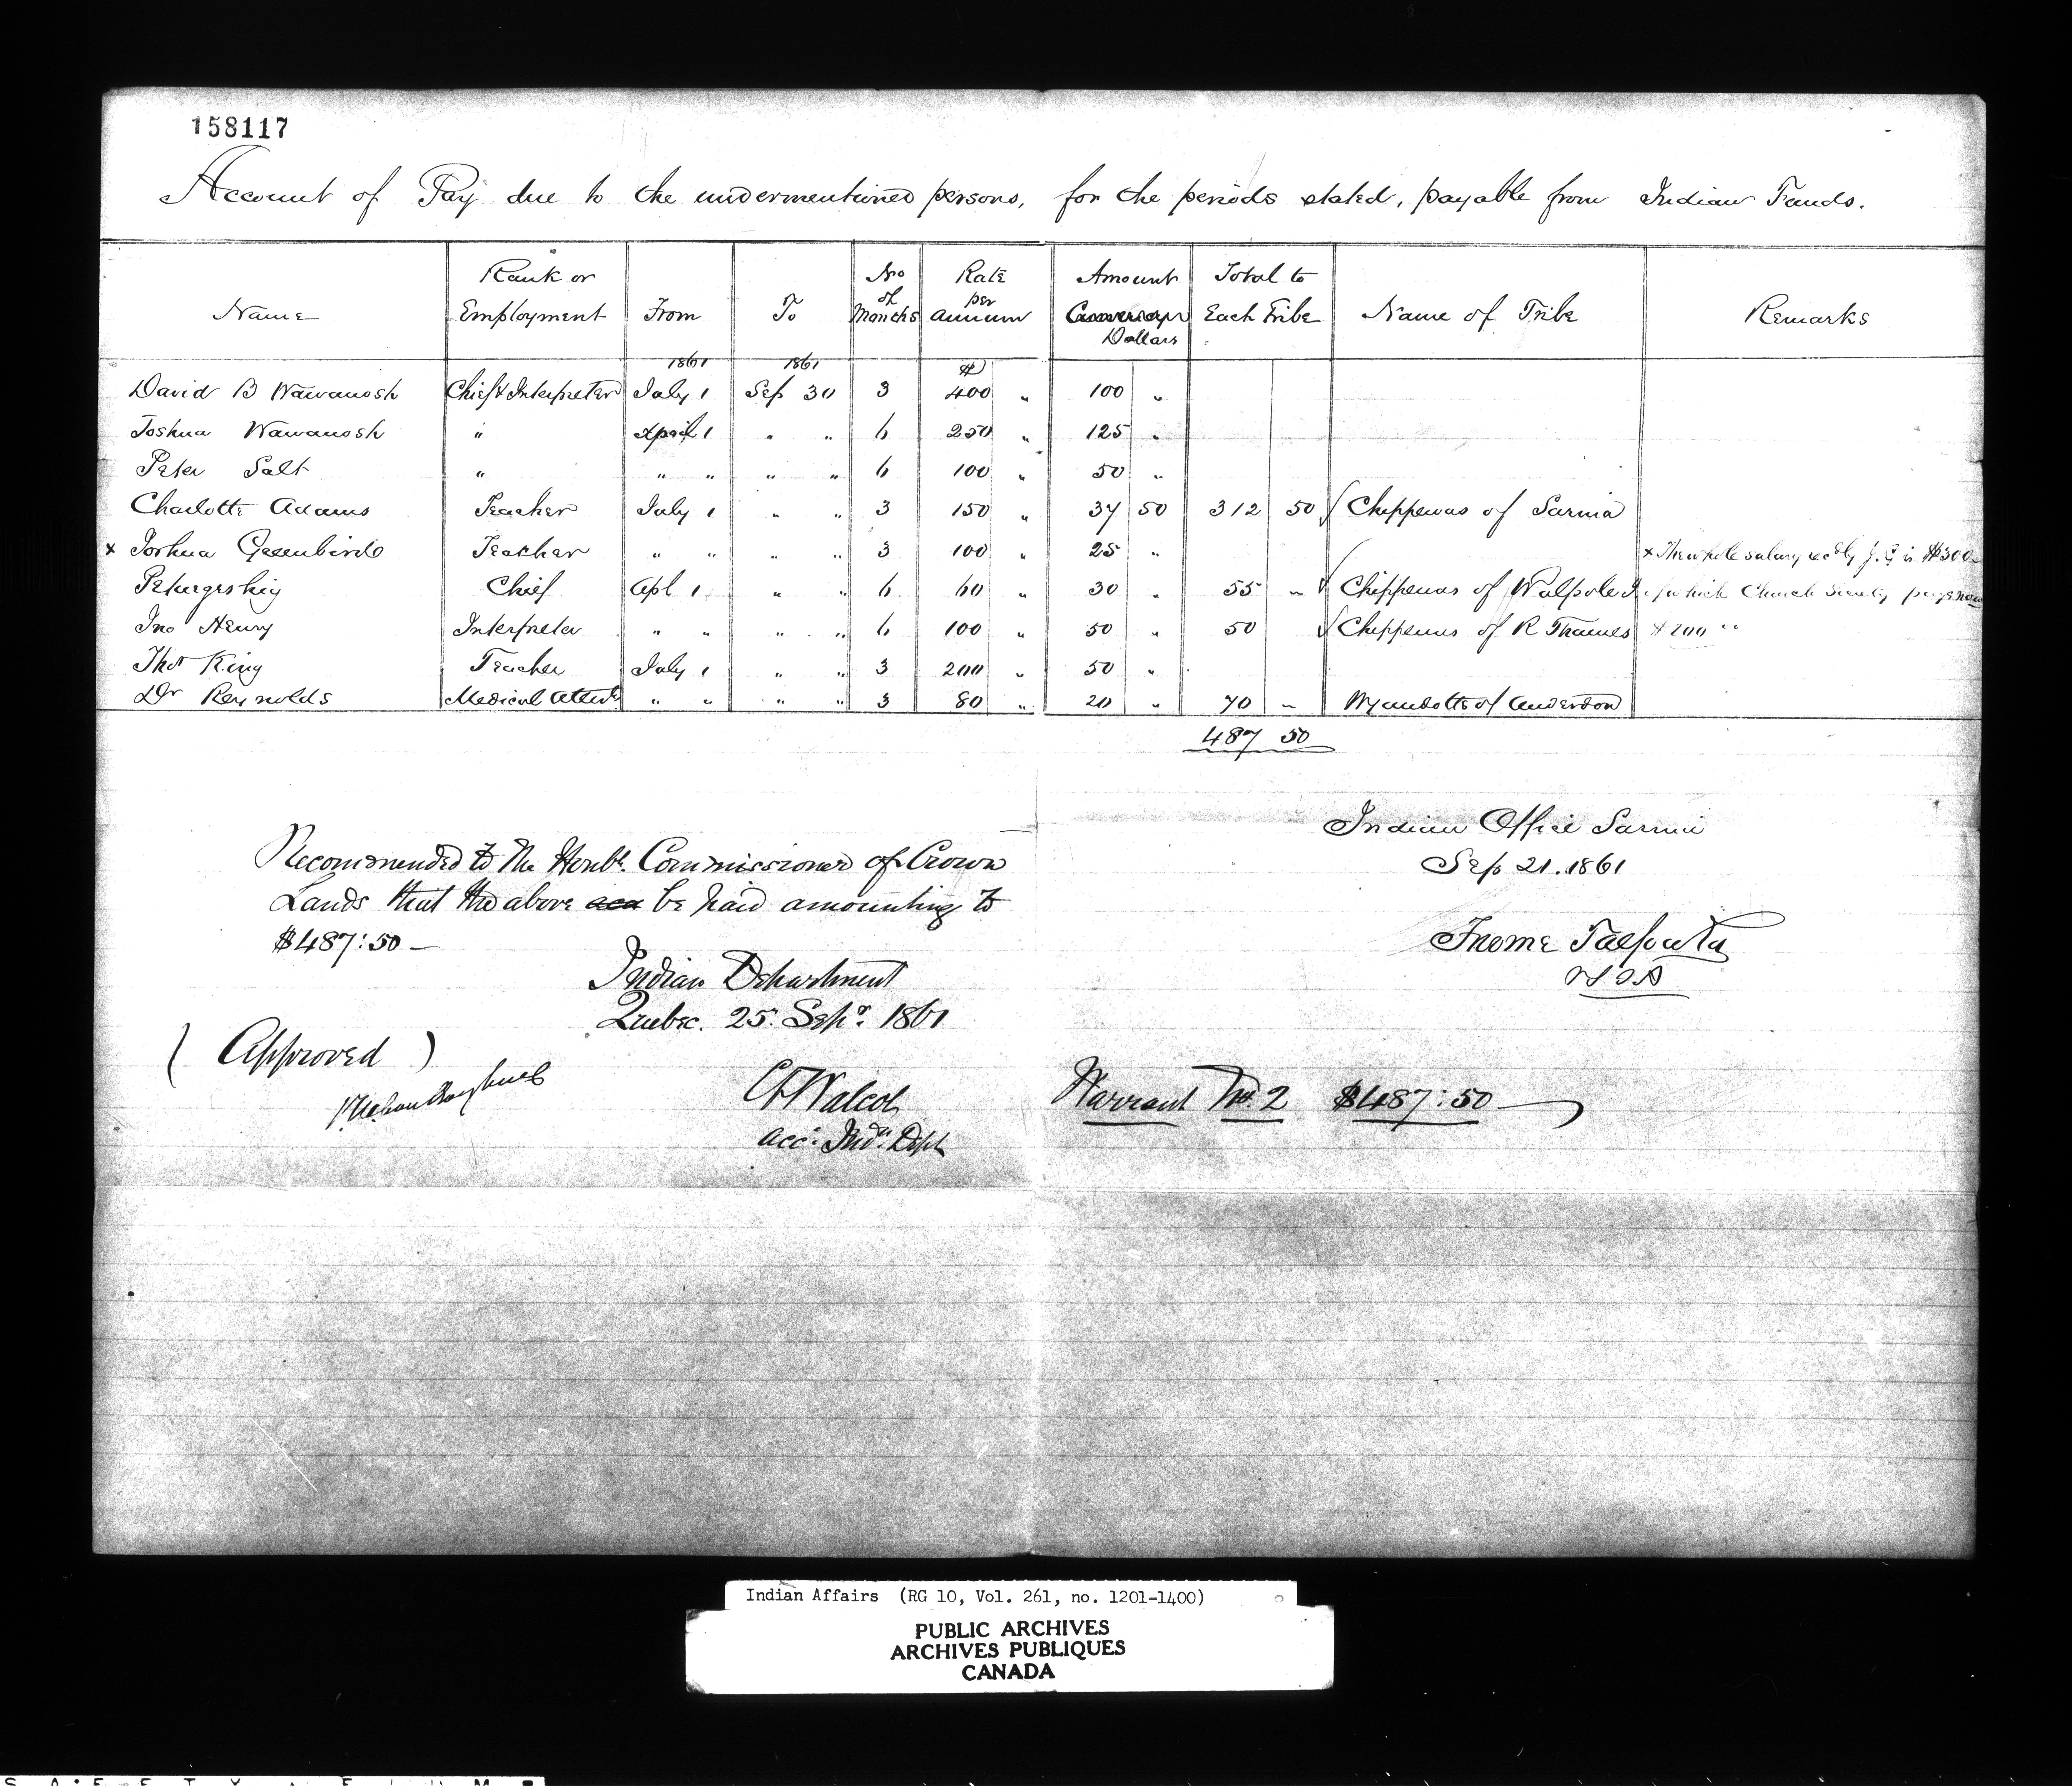 158117
Account of Pay due to the undermentioned persons, for the periods stated, payable from Indian Funds.
Name Rank or Employment From To No of Months Rate per annum Amount Dollars Total to Each Tribe Name of Tribe Remarks
1861 1861 $
David B Wawanosh Chief & Interpreter July 1 Sep 30 3 400 " 100 "
Joshua Wawanosh " April 1 " " 6 250 " 125 "
Peter Salt " " " " " 6 100 " 50 "
Charlotte Adams Teacher July 1 " " 3 150 " 37 50 312 50 Chippewas of Sarnia
x Joshua Greenbird Teacher " " " " 3 100 " 25 " x The whole salary recd by J.G is $300
Petwegeshig Chief Apl 1 " " 6 60 " 30 " 55 " Chippewas of Walpole I. of which Church Society pays now
Jno Henry Interpreter " " " " 6 100 " 50 " 50 Chippewas of R Thames $200 "
Thos King Teacher July 1 " " 3 200 " 50 "
Dr Reynolds Medical Attend " " " " 3 80 " 20 " 70 " Wyandotts of Anderdon
487 50
Indian Office Sarnia
Sep 21. 1861
Froome Talfourd
V S I A
Recommended to The Honble Commissioner of Crown
Lands that the above be paid amounting to
$487:50 —
Indian Department
Quebec. 25. Sepr. 1861
(Approved)
C T Walcot
acct. Indn. Dept
Warrant No. 2 $487:50
Indian Affairs (RG 10, Vol. 261, no. 1201-1400)
PUBLIC ARCHIVES
ARCHIVES PUBLIQUES
CANADA